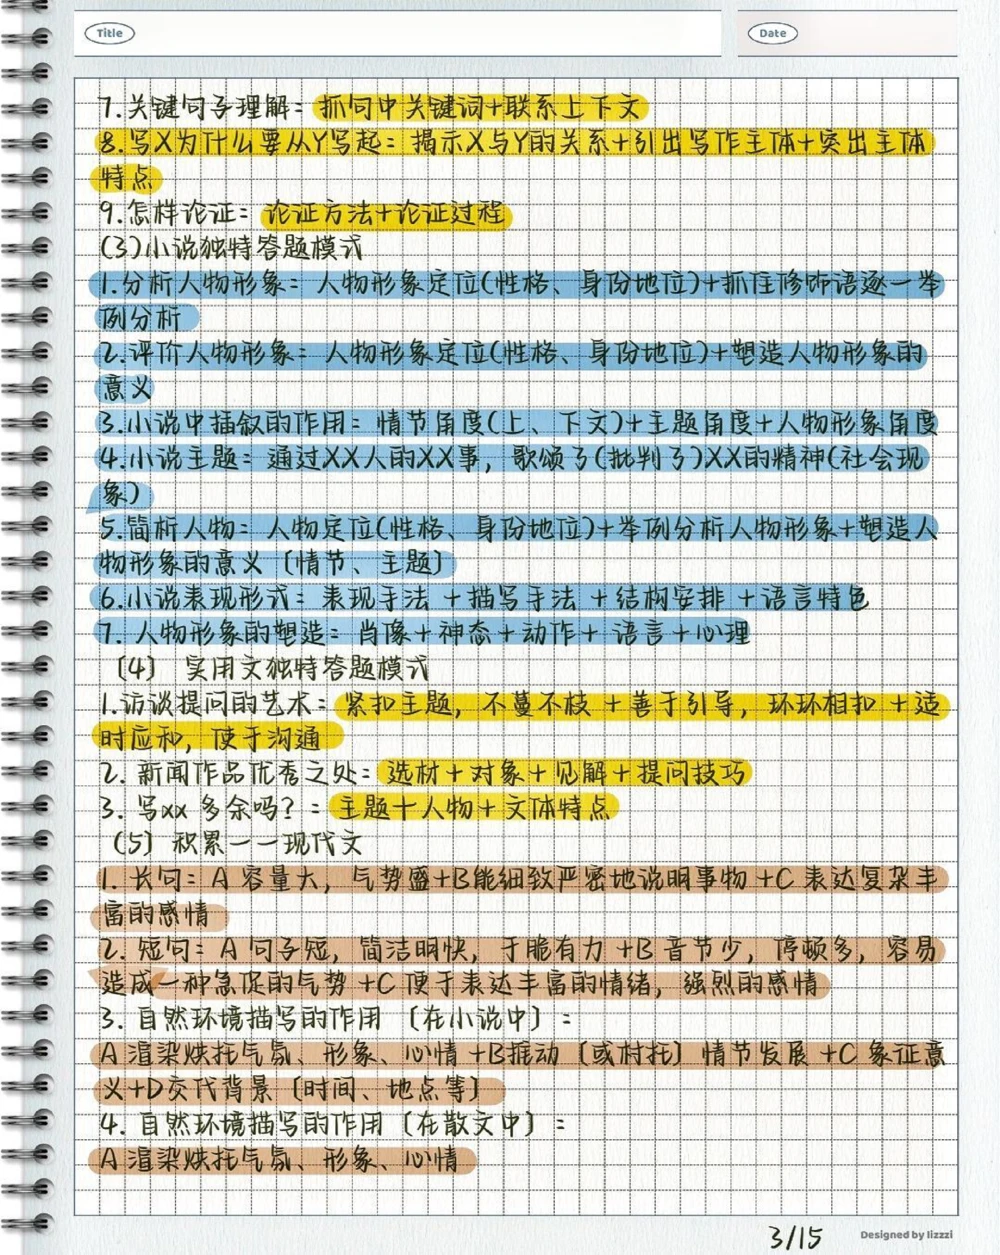 Title
Date
7.关键句子理解：抓句中关键词+联系上下文
8.写X为什么要从Y写起：揭示X与Y的关系+引出写作主体+突出主体
特点
9.怎样论证：论证方法+论证过程
(3)小说独特答题模式
1.分析人物形象：人物形象定位(性格、身份地位)+抓住修饰语逐一举
例分析
2.评价人物形象：人物形象定位(性格、身份地位)+塑造人物形象的
意义
3.小说中插叙的作用：情节角度(上、下文)+主题角度+人物形象角度
4.小说主题：通过XX人的XX事，歌颂了(批判了)XX的精神(社会现
象)
5.简析人物：人物定位(性格、身份地位)+举例分析人物形象+塑造人
物形象的意义〔情节、主题〕
6.小说表现形式：表现手法+描写手法+结构安排+语言特色
7. 人物形象的塑造：肖像+神态+动作+语言+心理
〔4〕 实用文独特答题模式
1.访谈提问的艺术：紧扣主题，不蔓不枝+善于引导，环环相扣+适
时应和，便于沟通
2. 新闻作品优秀之处：选材+对象+见解+提问技巧
3. 写xx多余吗？：主题+人物+文体特点
〔5〕积累一一现代文
1. 长句：A 容量大，气势盛+B能细致严密地说明事物+C 表达复杂丰
富的感情
2. 短句：A 句子短，简洁明快，干脆有力+B 音节少，停顿多，容易
造成一种急促的气势+C 便于表达丰富的情绪，强烈的感情
3. 自然环境描写的作用〔在小说中〕：
A 渲染烘托气氛、形象、心情+B推动〔或衬托〕情节发展+C 象征意
义+D交代背景〔时间、地点等〕
4. 自然环境描写的作用〔在散文中〕：
A 渲染烘托气氛、形象、心情
3/15
Designed by lizzzi